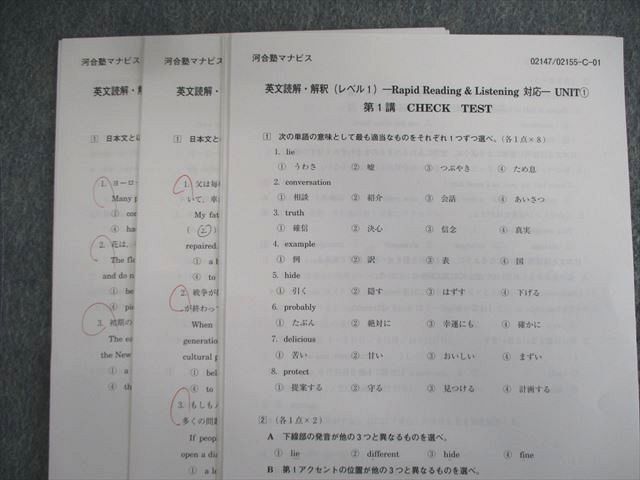 河合塾マナビス
英文読解・解
1 日本文と
1. ヨーロー
Many p
① co
③ ha
2. 花は、
The flo
and do n
① be
③ pie
3. 初期の
The ea
the New
① a
③ th
河合塾マナビス
英文読解・
1 日本文と
1. 父は毎
いて，車
My fat
( 2 )
repaired.
① a b
③ to
2. 戦争が
が終わっ
When
generation
cultural p
① bel
③ to
3. もしも
多くの問題
If peop
open a di
① a le
河合塾マナビス
02147/02155-C-01
英文読解・解釈（レベル1）―Rapid Reading & Listening 対応― UNIT①
第1講 CHECK TEST
1 次の単語の意味として最も適当なものをそれぞれ1つずつ選べ。（各1点×8）
1. lie
① うわさ ② 嘘 ③ つぶやき ④ ため息
2. conversation
① 相談 ② 紹介 ③ 会話 ④ あいさつ
3. truth
① 確信 ② 決心 ③ 信念 ④ 真実
4. example
① 例 ② 訳 ③ 表 ④ 国
5. hide
① 引く ② 隠す ③ はずす ④ 下げる
6. probably
① たぶん ② 絶対に ③ 幸運にも ④ 確かに
7. delicious
① 苦い ② 甘い ③ おいしい ④ まずい
8. protect
① 提案する ② 守る ③ 見つける ④ 計画する
2 （各1点×2）
A 下線部の発音が他の3つと異なるものを選べ。
① lie ② different ③ hide ④ fine
B 第1アクセントの位置が他の3つと異なるものを選べ。